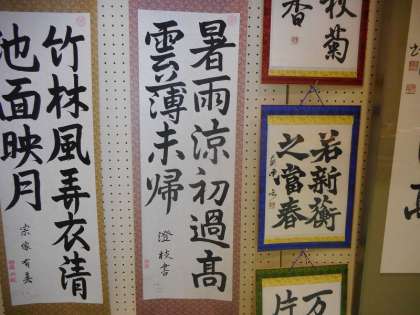 菊
香
若新蘅
之當春
万
片
暑雨涼初過高
雲薄未帰
澄枝書
竹林風弄衣清
池面映月